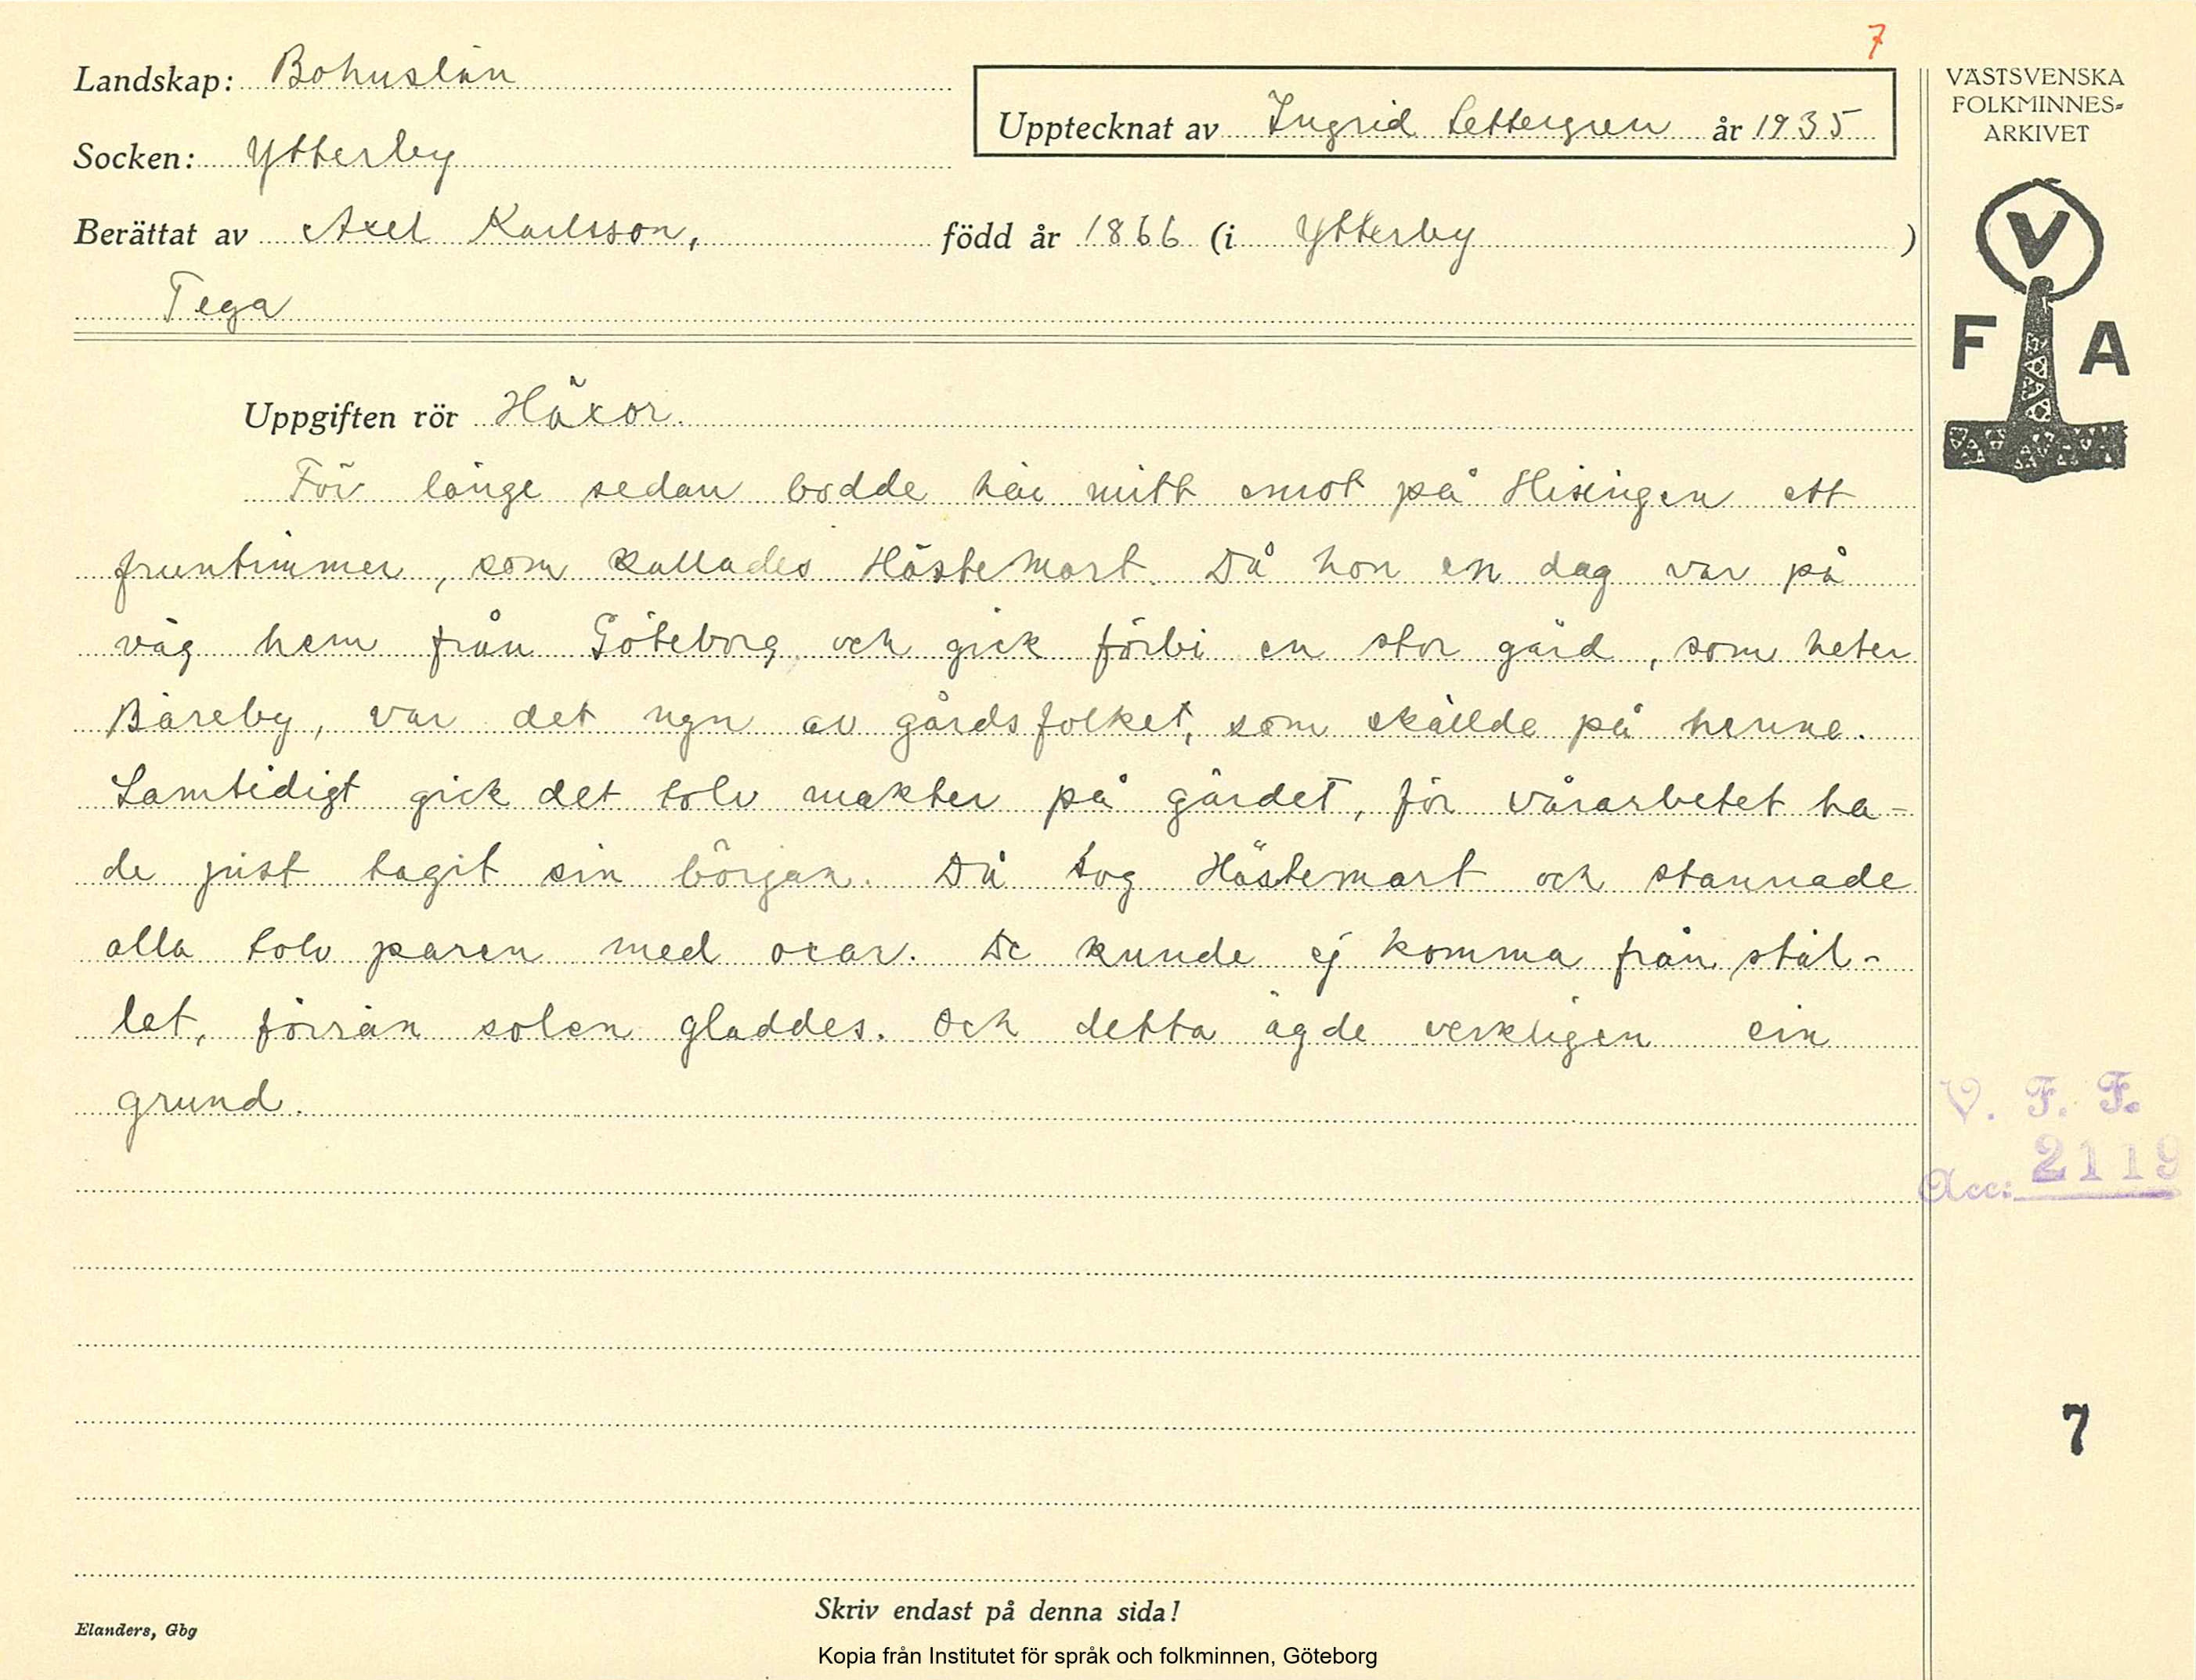 7
Landskap: Bohuslän
Socken: Ytterby
Upptecknat av Ingrid Settergren år 1935
Berättat av Axel Karlsson, född år 1866 (i Ytterby )
Tega
VÄSTSVENSKA
FOLKMINNES-
ARKIVET
V
F A
Uppgiften rör Häxor.
För länge sedan bodde här mitt emot på Hisingen ett
fruntimmer, som kallades HästeMart. Då hon en dag var på
väg hem från Göteborg och gick förbi en stor gård, som heter
Bäreby, var det ngn av gårdsfolket, som skällde på henne.
Samtidigt gick det tolv makter på gärdet, för vårarbetet ha-
de just tagit sin början. Då tog Hästemart och stannade
alla tolv paren med oxar. De kunde ej komma från stäl-
let, förrän solen gladdes. Och detta ägde verkligen sin
grund.
V. F. F.
Acc: 2119
7
Skriv endast på denna sida!
Elanders, Gbg
Kopia från Institutet för språk och folkminnen, Göteborg